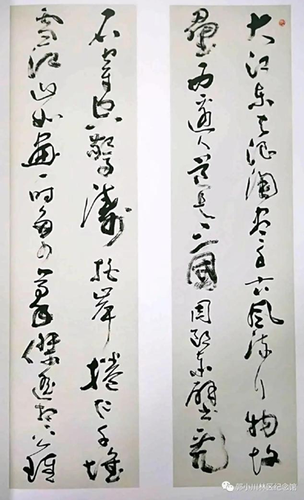 大江东去浪淘尽千古风流人物故
壘西邊人道是三國周郎赤壁亂
石穿空驚濤拍岸捲起千堆
雪江山如畫一時多少豪傑遙想公瑾
郭小川林区纪念馆